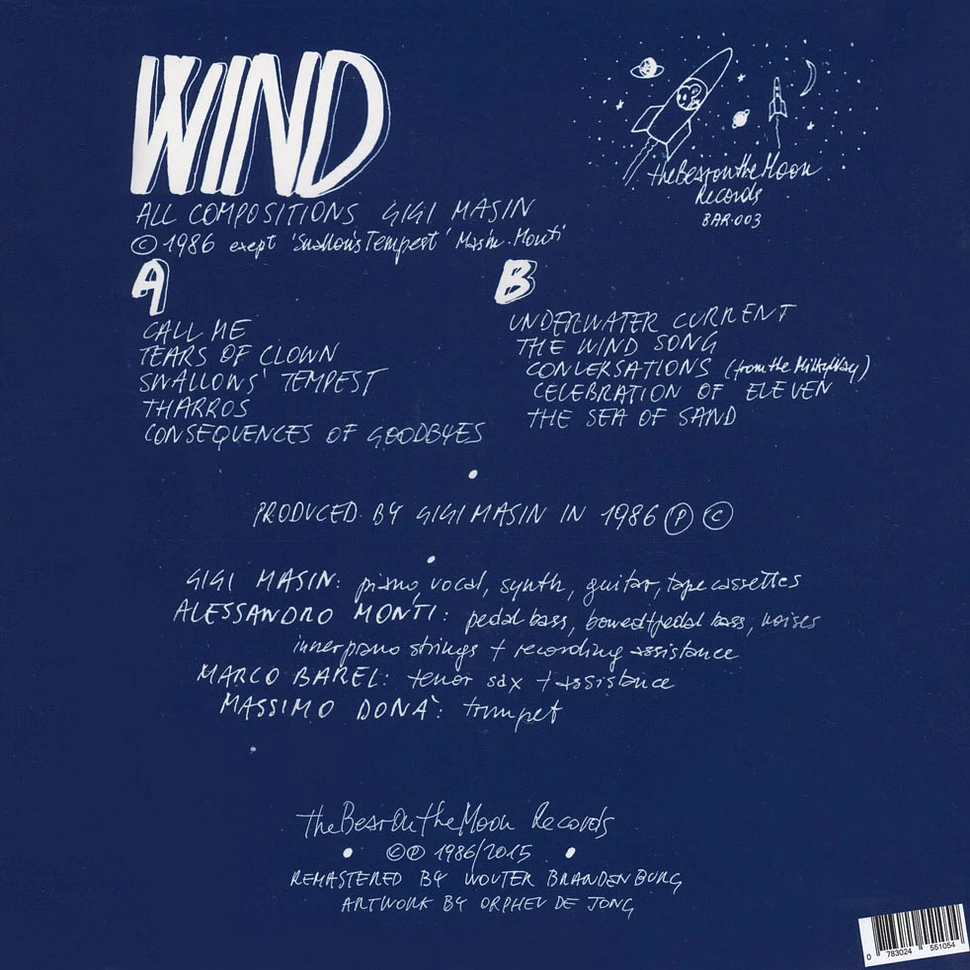 WIND
theBearontheMoon
Records
BAR003
ALL COMPOSITIONS GIGI MASIN
© 1986 exept 'Swallow's Tempest' Masin.Monti
A
CALL ME
TEARS OF CLOWN
SWALLOWS' TEMPEST
THARROS
CONSEQUENCES OF GOODBYES
B
UNDERWATER CURRENT
THE WIND SONG
CONVERSATIONS (from the MilkyWay)
CELEBRATION OF ELEVEN
THE SEA OF SAND
PRODUCED BY GIGI MASIN IN 1986 Ⓟ ©
GIGI MASIN: piano, vocal, synth, guitar, tape cassettes
ALESSANDRO MONTI: pedal bass, bowed/pedal bass, noises
inner piano strings + recording assistance
MARCO BAREL: tenor sax + assistance
MASSIMO DONÀ: trumpet
theBearOntheMoon Records
©Ⓟ 1986/2015
REMASTERED BY WOUTER BRANDENBURG
ARTWORK BY ORPHEU DE JONG
0 783024 551054